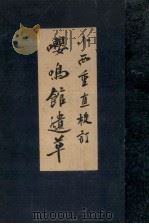 小西重直校訂
嚶鳴館遺草